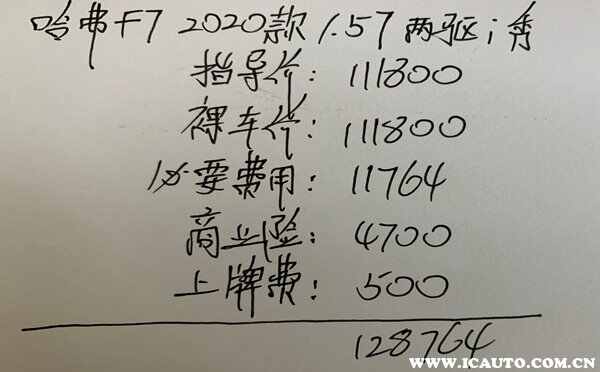 哈弗F7 2020款 1.5T 两驱 i秀
指导价: 111800
裸车价: 111800
必要费用: 11764
商业险: 4700
上牌费: 500
128764
WWW.ICAUTO.COM.CN